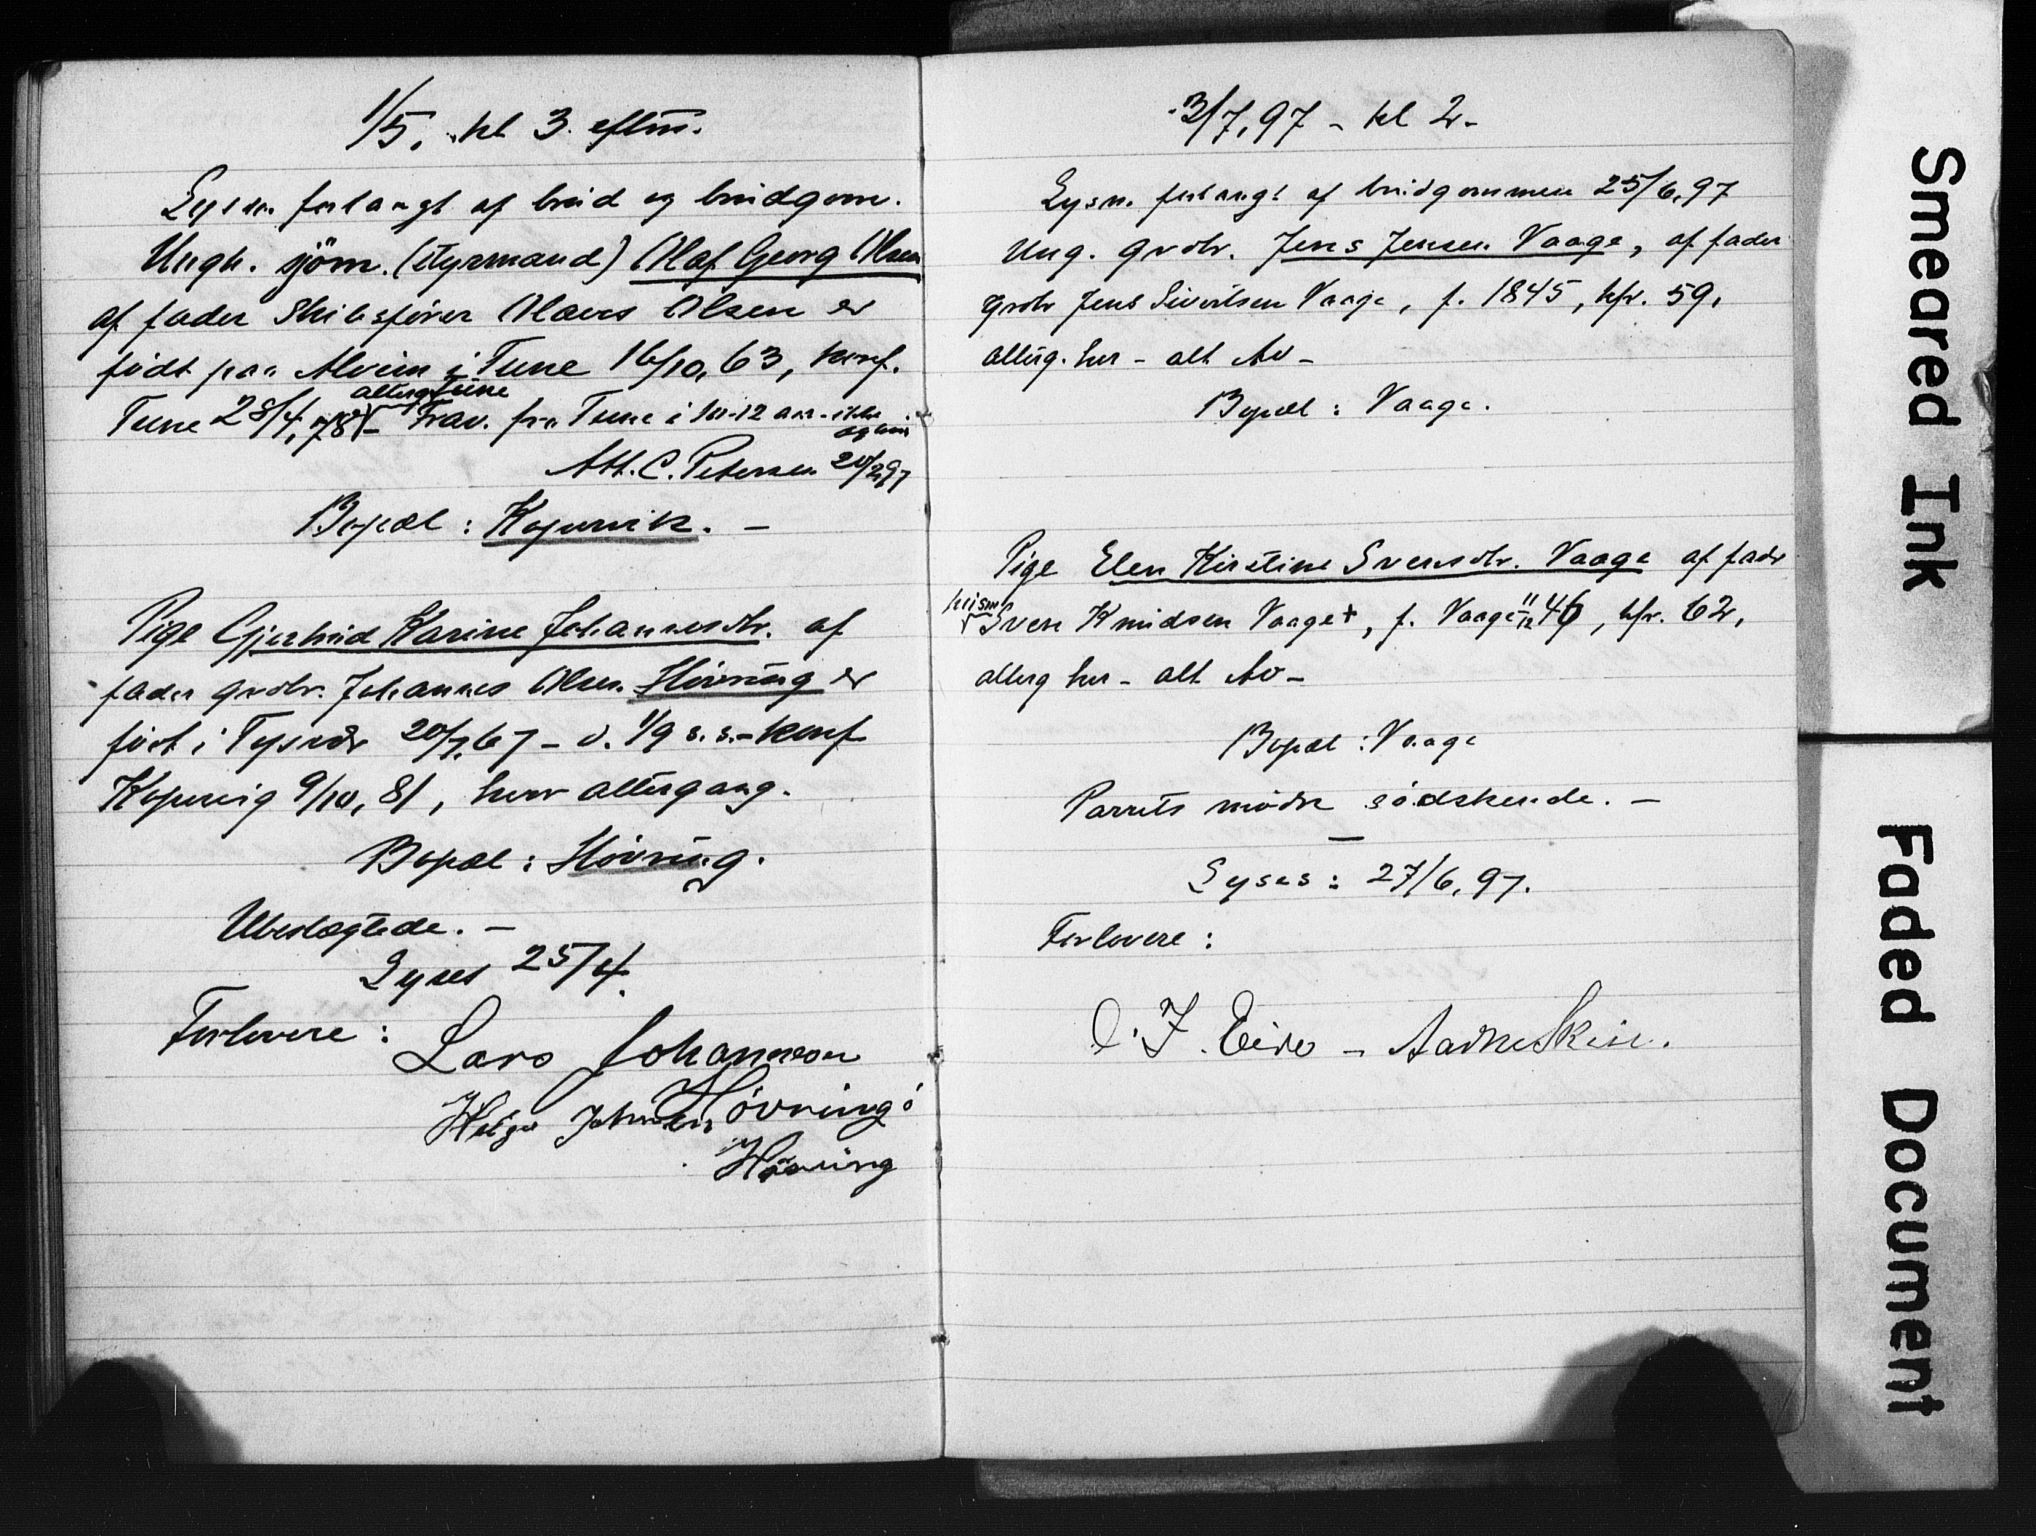 1/5. kl 3. eftm.
Lysn. forlangt af brud og brudgom.
Ungk. sjöm. (styrmand) Olaf Georg Olsen
af fader Skibsfører Olaves Olsen er
födt paa Alvim i Tune 16/10, 63, konf.
alterg. Tune
Tune 28/4, 78 - Frav. fra Tune i 10-12 aar - ikke
Att. C. Petersen 20/2 97
Bopæl: Kopervik. -
Pige Gjertrud Karine Johannesdtr. af
fader grdbr. Johannes Olsen Hövring er
föd i Tysvær 20/7, 67 - d. 1/9 s. s. - konf
Kopervig 9/10, 81, hvor altergang.
Bopæl: Hövring.
Ubeslægtede. -
Lyses 25/4.
Forlovere:
Lars Johannesen
Hövring
Helge Johnsen
Hövring
3/7, 97 - kl 2 -
Lysn. forlangt af brudgommen 25/6, 97
Ung. grdbr. Jens Jensen Vaage, af fader
grdbr Jens Sivertsen Vaage, f. 1845, kfr. 59,
alterg. her - alt Av -
Bopæl: Vaage.
Pige Elen Kirstine Svensdtr. Vaage af fader
husm
Sven Knudsen Vaage +, f. Vaage 11/12 46, kfr. 62,
alterg her - alt Av -
Bopæl: Vaage
Parrets mødre södskende. -
Lyses: 27/6, 97.
Forlovere:
O. J. Eide - Aadne Skeie.
Smeared Ink
Faded Document